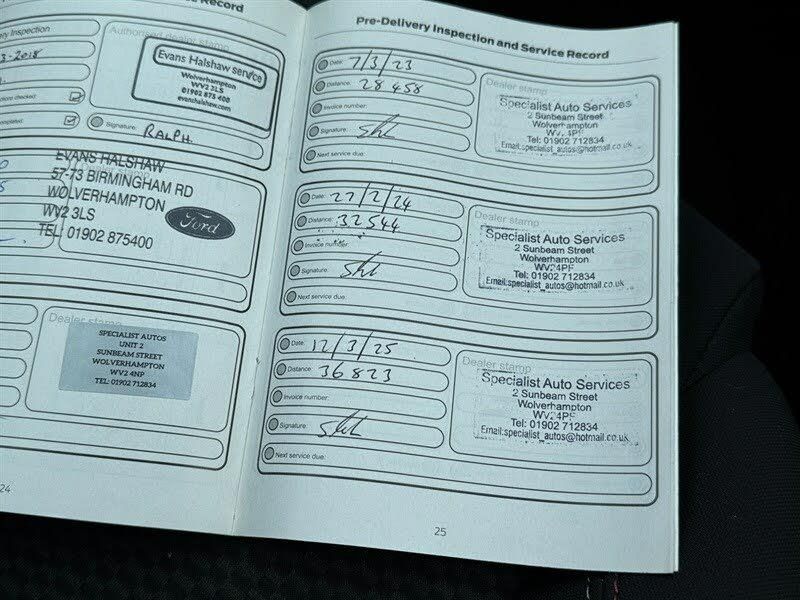 ce Record
ry Inspection
3-2018
tions checked:
ompleted:
Authorised dealer stamp
Evans Halshaw service
Wolverhampton
WV2 3LS
01902 875 400
evanshalshaw.com
Signature: RALPH
EVANS HALSHAW
57-73 BIRMINGHAM RD
WOLVERHAMPTON
WV2 3LS
TEL: 01902 875400
Ford
Dealer stamp
SPECIALIST AUTOS
UNIT 2
SUNBEAM STREET
WOLVERHAMPTON
WV2 4NP
TEL: 01902 712834
24
Pre-Delivery Inspection and Service Record
Date: 7/3/23
Distance: 28458
Invoice number:
Signature:
Next service due:
Dealer stamp
Specialist Auto Services
2 Sunbeam Street
Wolverhampton
Tel: 01902 712834
Email:specialist_autos@hotmail.co.uk
Date: 27/2/24
Distance: 32544
Invoice number:
Signature:
Next service due:
Dealer stamp
Specialist Auto Services
2 Sunbeam Street
Wolverhampton
Tel: 01902 712834
Email:specialist_autos@hotmail.co.uk
Date: 12/3/25
Distance: 36823
Invoice number:
Signature:
Next service due:
Dealer stamp
Specialist Auto Services
2 Sunbeam Street
Wolverhampton
Tel: 01902 712834
Email:specialist_autos@hotmail.co.uk
25